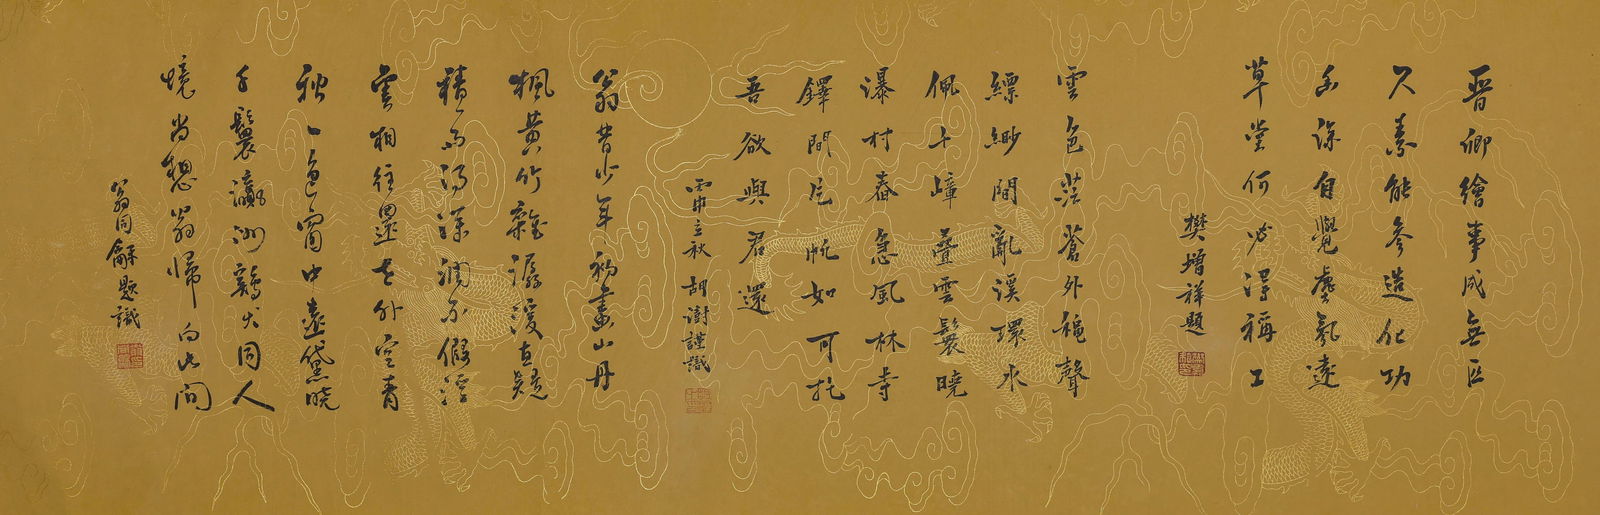 晉卿繪事咸無匹
久素能參造化功
幽深自覺處氣遠
草堂何必浔稱工
樊增祥題
雲色茫蒼外聲
縹緲間亂溪環水
佩十嶂疊雲鬟曉
瀑村舂急風林寺
鐸間帆如可托
吾欲與君還
立秋胡澍謹識
翁昔少年初畫山丹
楓黃竹雜潺湲直疑
積雨得深潤不假淫
雲相往還老外空青
秋一色窗中遠黛曉
千鬟瀛洲鷄犬同人
境尚想翁歸向此間
翁同龢題識